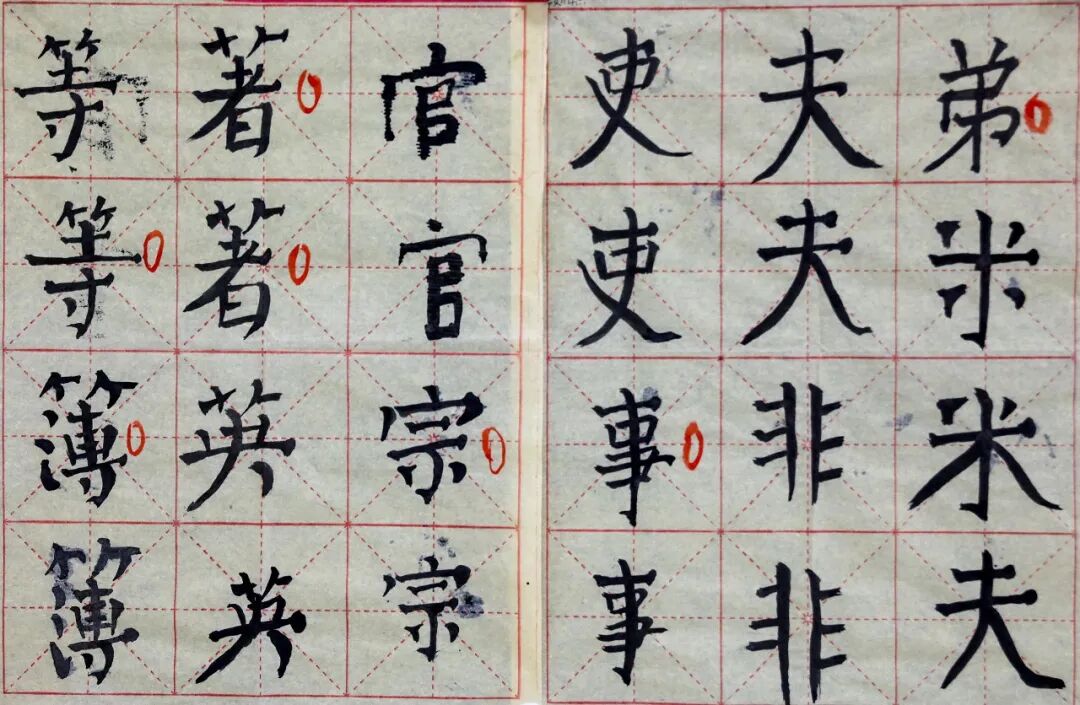 弟米米夫
夫夫非非
吏吏事事
官官宗宗
著著英英
等等簿簿